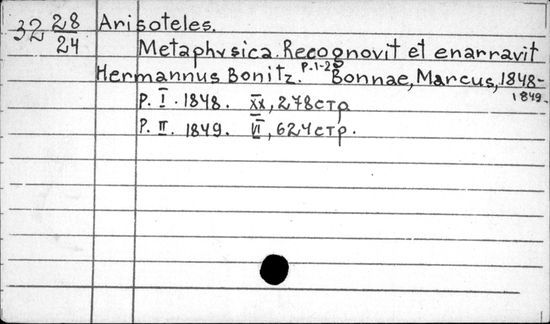 32 28/24 Arisoteles.
Metaphysica. Recognovit et enarravit
Hermannus Bonitz. P.1-2 Bonnae, Marcus, 1848-
1849.
P. I. 1848. XX, 278 стр
P. II. 1849. VI, 624 стр.